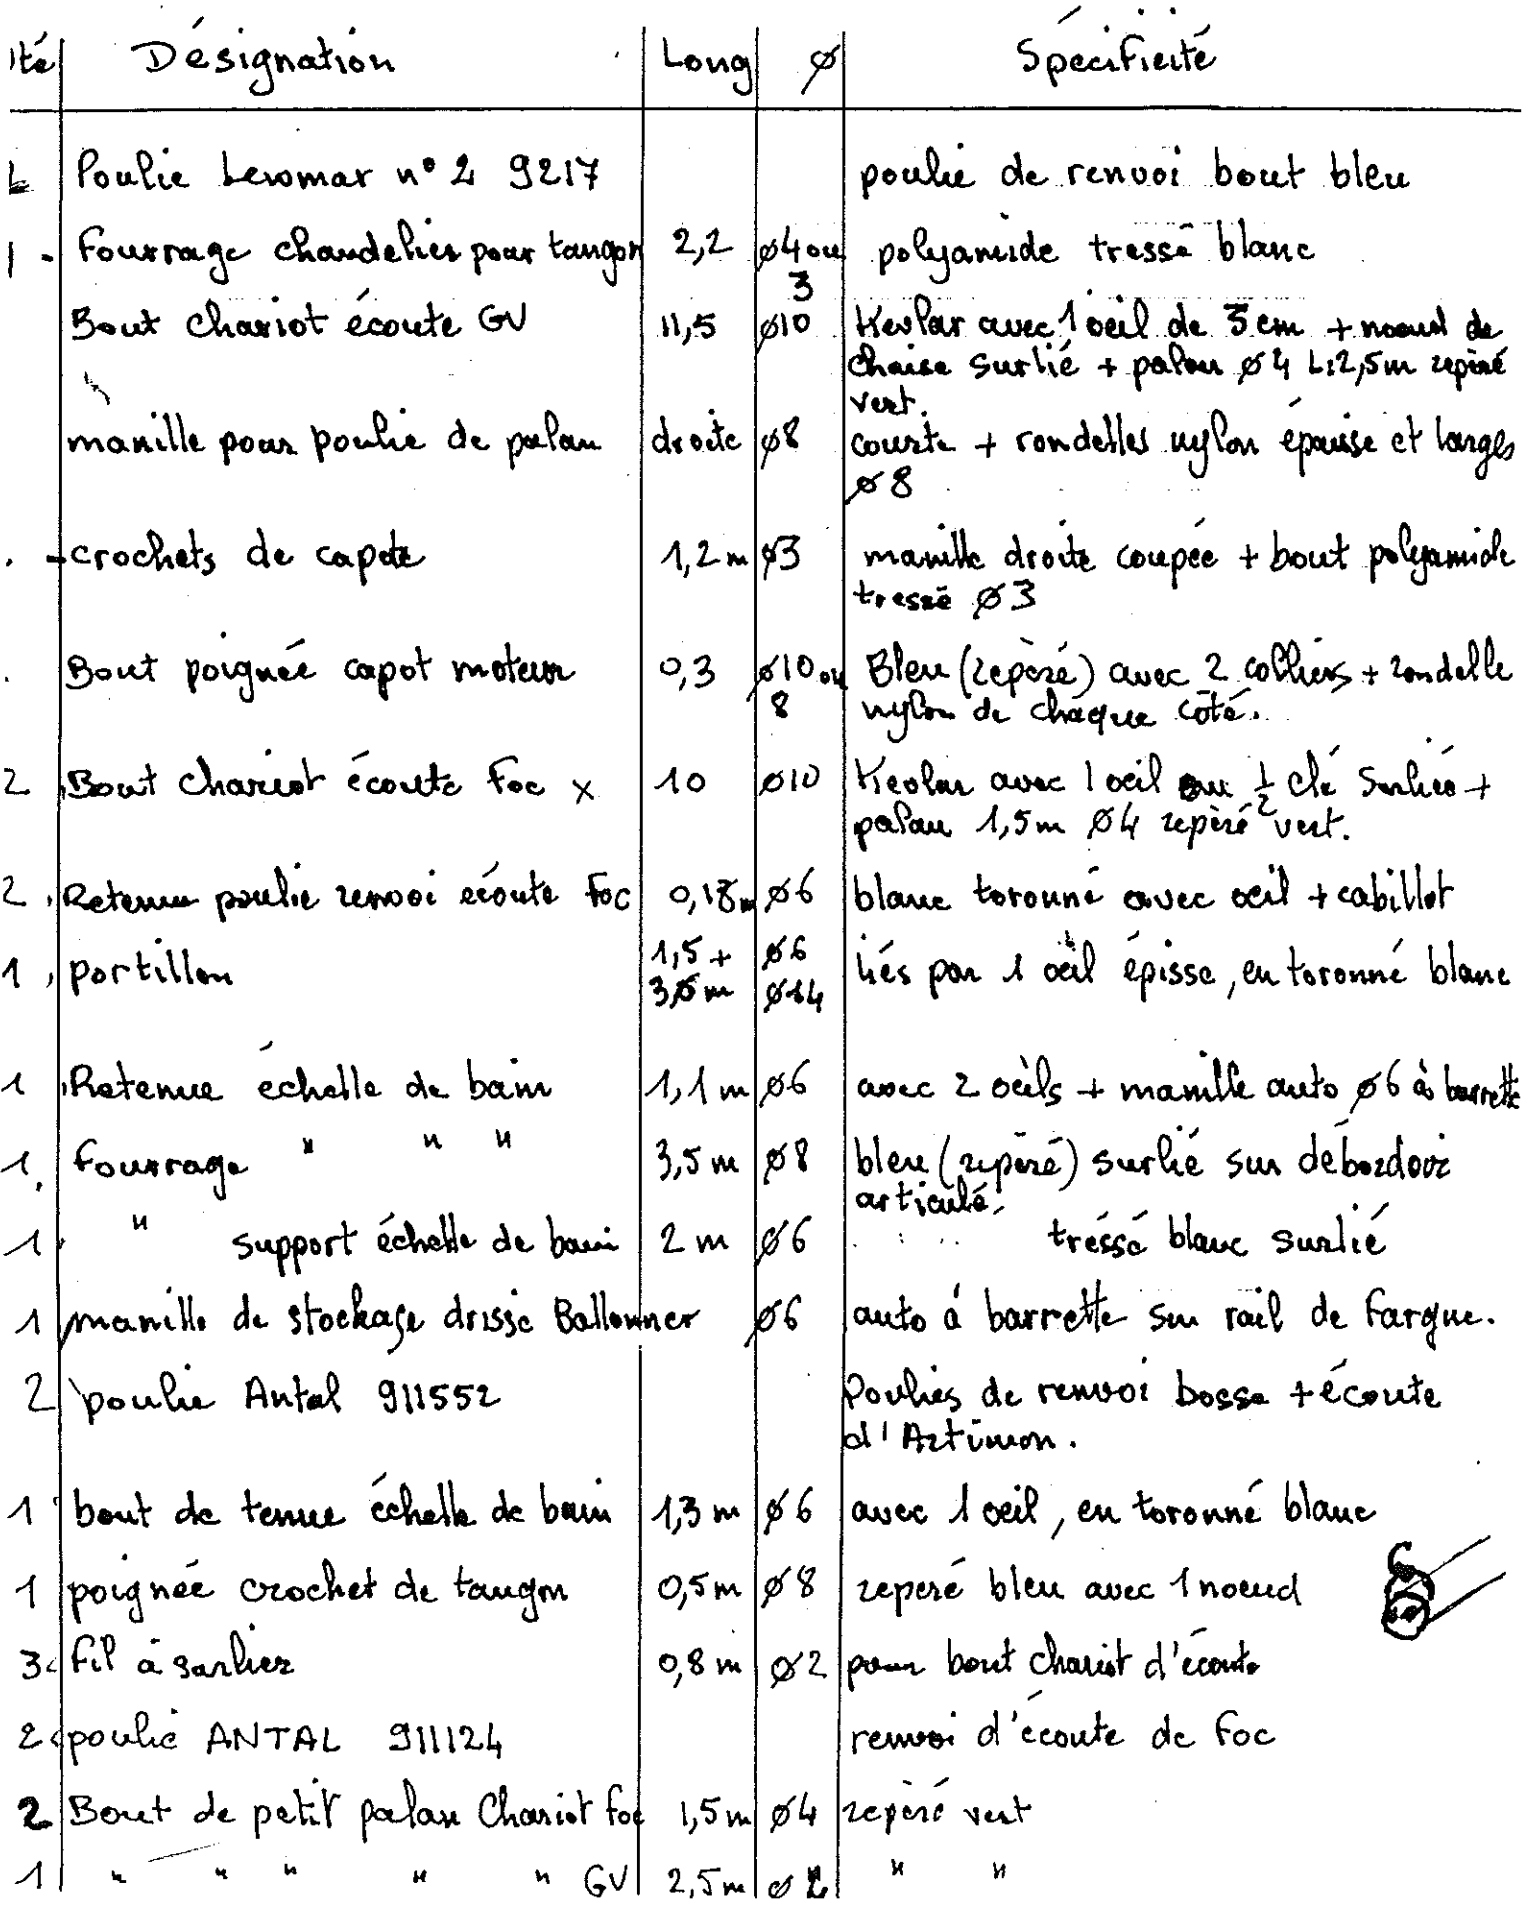 ité Désignation Long ø Spécificité
Poulie Lewmar n° 2 9217 poulie de renvoi bout bleu
1 - Fourrage chandelier pour tangon 2,2 ø4 ou 3 polyamide tressé blanc
Bout chariot écoute GV 11,5 ø10 Kevlar avec 1 oeil de 3 cm + noeud de
chaise surlié + palan ø4 L:2,5m repéré
vert.
manille pour poulie de palan droite ø8 courte + rondelles nylon épaisse et larges
ø8
- crochets de capote 1,2 m ø3 manille droite coupée + bout polyamide
tressé ø3
Bout poignée capot moteur 0,3 ø10 ou 8 Bleu (repéré) avec 2 colliers + rondelle
nylon de chaque côté.
2 Bout chariot écoute Foc x 10 ø10 Kevlar avec 1 oeil ou 1/2 clé surliée +
palan 1,5m ø4 repèré vert.
2 Retenue poulie renvoi écoute Foc 0,18m ø6 blanc toronné avec oeil + cabillot
1 portillon 1,5 + ø6 liés par 1 oeil épissé, en toronné blanc
m ø14
1 Retenue échelle de bain 1,1 m ø6 avec 2 oeils + manille auto ø6 à barrette
1 Fourrage " " " 3,5 m ø8 bleu (repéré) surlié sur débordoir
articulé.
1 " support échelle de bain 2 m ø6 tréssé blanc surlié
1 manille de stockage drisse Ballonner ø6 auto à barrette sur rail de Fargue.
2 poulie Antal 911552 Poulies de renvoi bosse + écoute
d'Artimon.
1 bout de tenue échelle de bain 1,3 m ø6 avec 1 oeil, en toronné blanc
1 poignée crochet de tangon 0,5 m ø8 reperé bleu avec 1 noeud
3 Fil à surlier 0,8 m ø2 pour bout chariot d'écoute
2 poulie ANTAL 911124 renvoi d'écoute de Foc
2 Bout de petit palan Chariot foc 1,5 m ø4 repèré vert
1 " " " " " GV 2,5 m ø " "